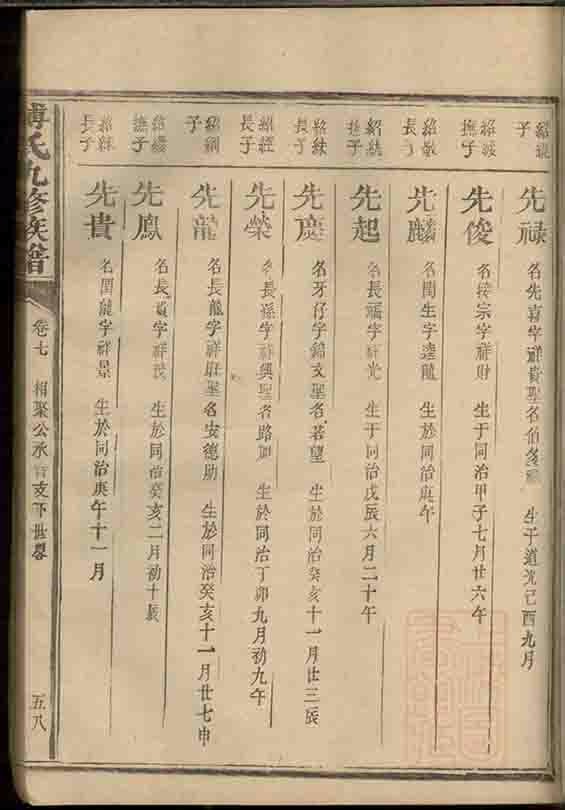 子
先祿
名先喜字祥貴聖名伯多祿 生于道光己酉九月
撫子
先俊
名接宗字祥財 生于同治甲子七月廿六午
長子
先麟
名閏生字達龍 生於同治庚午
撫子
先起
名長福字祥光 生于同治戊辰六月二十午
紹緑長子
先慶
名牙仔字錦文聖名若望 生於同治癸亥十一月廿三辰
紹經長子
先榮
名長孫字祥興聖名路加 生於同治丁卯九月初九午
紹綱子
先龍
名長龍字祥旺聖名安德助 生於同治癸亥十一月廿七申
撫子
先鳳
名長貴字祥茂 生於同治癸亥二月初十辰
長子
先貴
名閏龍字祥景 生於同治庚午十一月
傅氏九修族譜
卷七 相聚公承 支下世畧
五八